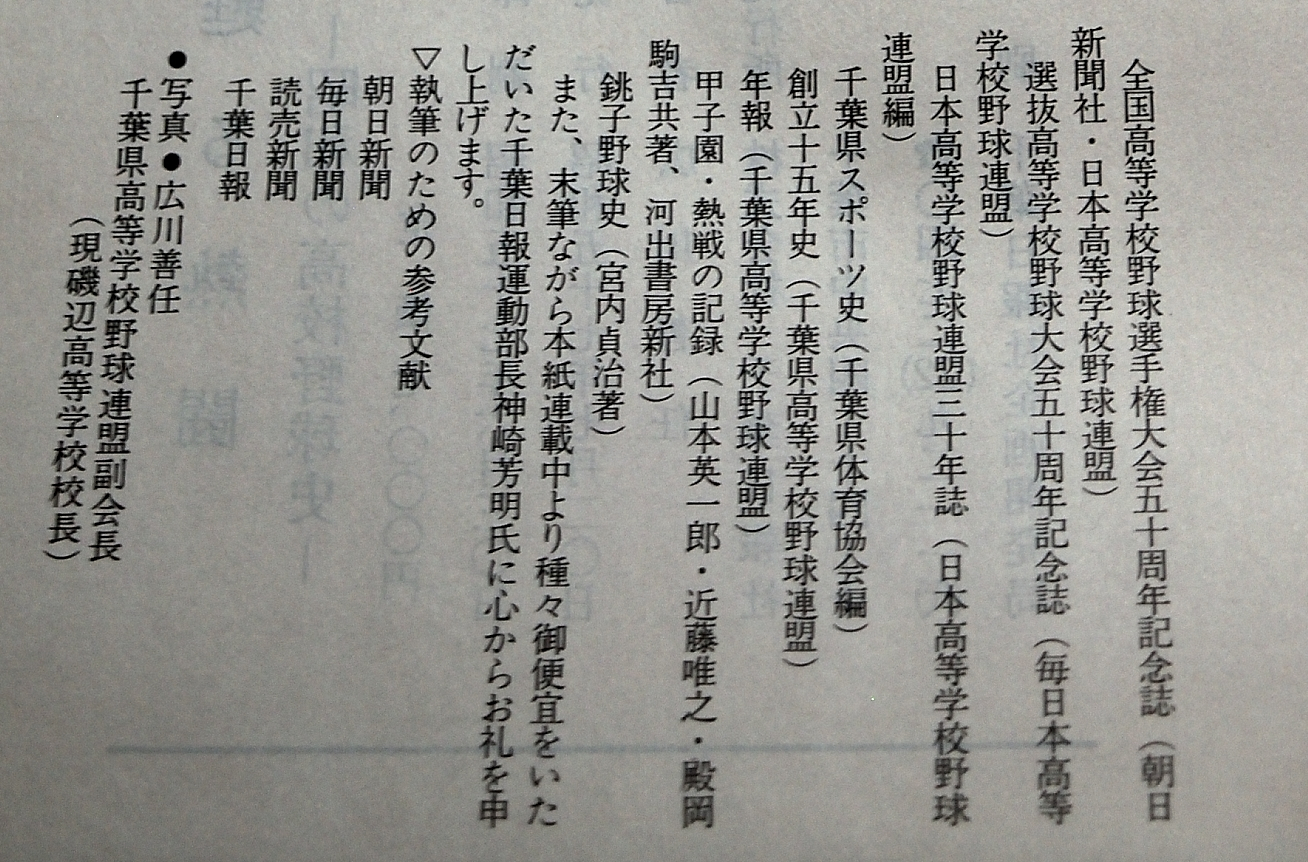 全国高等学校野球選手権大会五十周年記念誌（朝日
新聞社・日本高等学校野球連盟）
選抜高等学校野球大会五十周年記念誌（毎日本高等
学校野球連盟）
日本高等学校野球連盟三十年誌（日本高等学校野球
連盟編）
千葉県スポーツ史（千葉県体育協会編）
創立十五年史（千葉県高等学校野球連盟）
年報（千葉県高等学校野球連盟）
甲子園・熱戦の記録（山本英一郎・近藤唯之・殿岡
駒吉共著、河出書房新社）
銚子野球史（宮内貞治著）
また、末筆ながら本紙連載中より種々御便宜をいた
だいた千葉日報運動部長神崎芳明氏に心からお礼を申
し上げます。
▽執筆のための参考文献
朝日新聞
毎日新聞
読売新聞
千葉日報
●写真●広川善任
千葉県高等学校野球連盟副会長
（現磯辺高等学校校長）